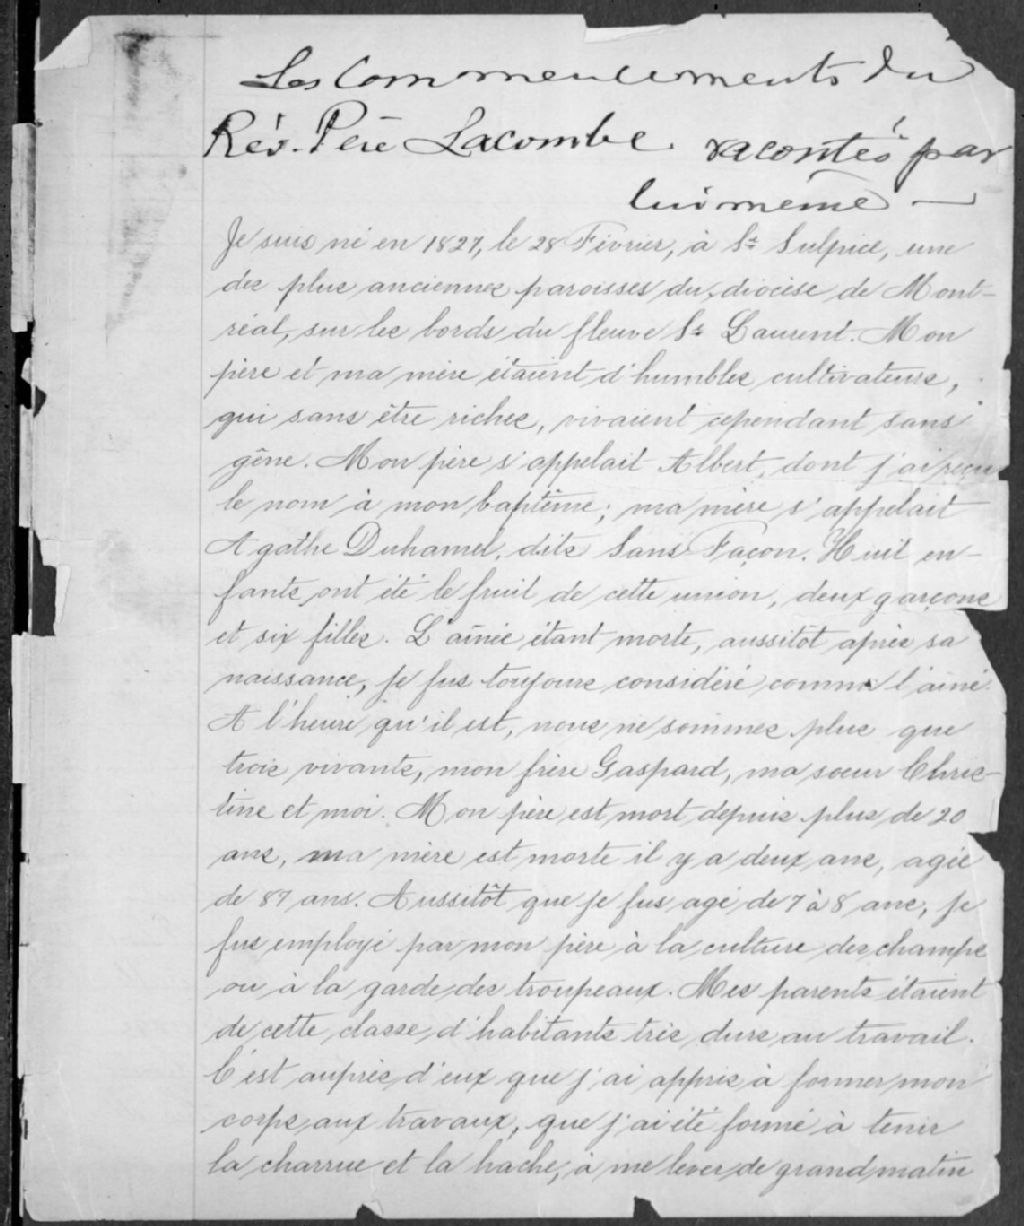 Les Commencements du
Rév. Père Lacombe racontés par
lui même —
Je suis né en 1827, le 28 Février, à St Sulpice, une
des plus anciennes paroisses du diocèse de Mont-
réal, sur les bords du fleuve St Laurent. Mon
père et ma mère étaient d'humbles cultivateurs,
qui sans être riches, vivaient cependant sans
gêne. Mon père s'appelait Albert, dont j'ai reçu
le nom à mon baptême; ma mère s'appelait
Agathe Duhamel, dite Sans Façon. Huit en-
fants ont été le fruit de cette union, deux garçons
et six filles. L'aînée étant morte, aussitôt après sa
naissance, je fus toujours considéré comme l'aîné.
A l'heure qu'il est, nous ne sommes plus que
trois vivants, mon frère Gaspard, ma soeur Chris-
tine et moi. Mon père est mort depuis plus de 20
ans, ma mère est morte il y a deux ans, agée
de 87 ans. Aussitôt que je fus agé de 7 à 8 ans, je
fus employé par mon père à la culture des champs
ou à la garde des troupeaux. Mes parents étaient
de cette classe d'habitants très durs au travail.
C'est auprès d'eux que j'ai appris à former mon
corps aux travaux, que j'ai été formé à tenir
la charrue et la hache, à me lever de grand matin